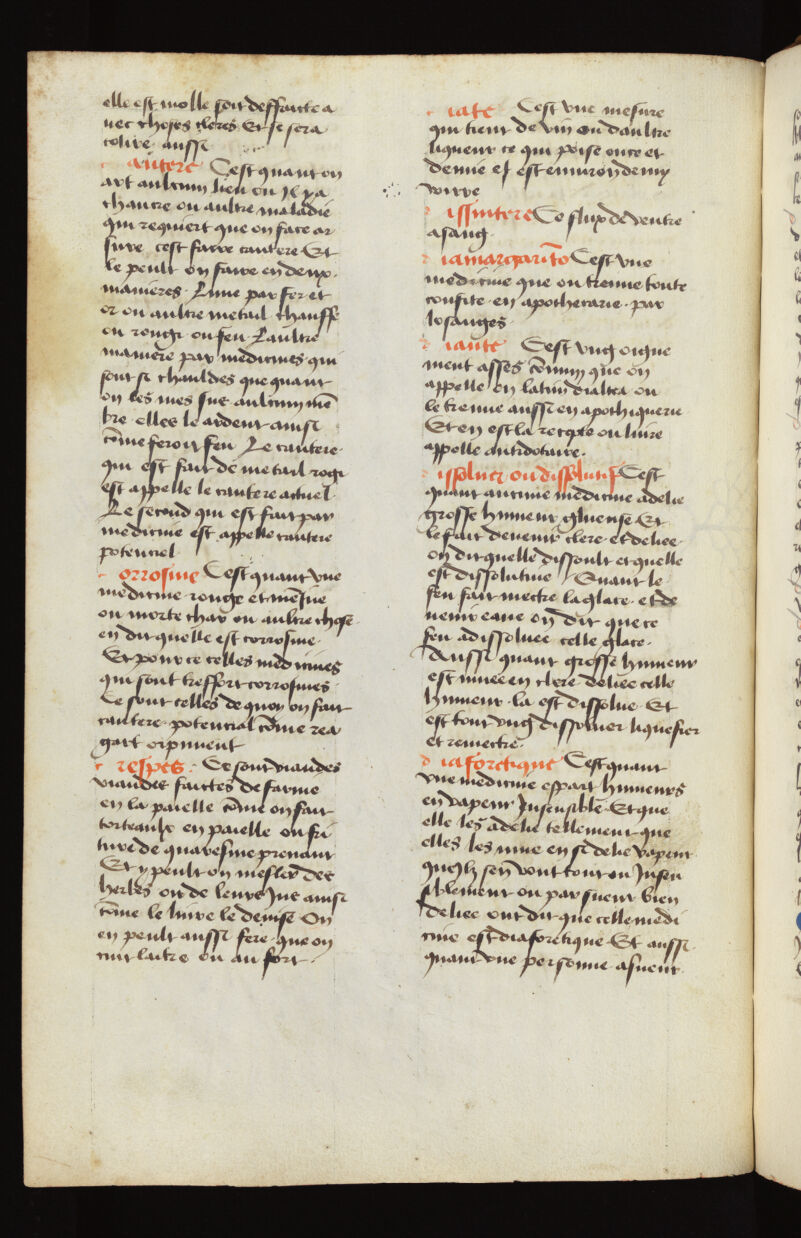 elle est molle soit deffaicte a
uec choses cleres Et se sera
colire aussi
cautere Cest quant on
art aulcun lieu ou Il y a
chancre ou aultre maladie
qui requiert que on face ar
sure cest faire cautere Et
le peult on faire en deux
manieres Lune par fer et
or ou aultre metail chauffe
en rouge ou feu Laultre
maniere par medicines qui
sont si chauldes que quant
on les mes sus aulcun mẽ
bre elles le ardent ainsi
cõme feroit feu Le cautere
qui est fait de metail roge
est appelle le cautere actuel
Le second qui est fait par
medicine est appelle cautere
potenciel
c orrosiue Cest quant vne
medicine ronge et menue
ou morte char ou aultre chose
en dit quelle est corrosiue
Et pour ce celles medicines
qui sont tresfort corrosiues
Ce sont celles de quoy on fait
cautere potencial cõme rea
gart orpiment
c respes Ce sont viandes
viandes faictes de farine
en la paielle cõme on fait
torteaulx en paielle ou fri
ture de quaresme prenant
Et y peult on mesler des
herbes ou de leure Jus ainsi
cõme le liure le deuise On
en peult aussi fere que on
cuit laitre ou au fort
c iate Cest vne mesure
qui tient de vin ou daultre
liqueur ce qui poise once et
demie et est enuiron demy
voirre
d issintere Ce flux de ventre
a sang
d iamargaritõ Cest vne
medicine que on treuue toute
confite en apothecarie par
losanges
d iaute Cest vng oigne
ment asses cõmun que on
appelle en latin dialtea on
le treuue aussi en apothiquerie
Et en est la recepte ou liure
appelle antidotaire
d issoluer ou dissolutif Cest
quant aucune medicine adelie
grosse humeur gluense Et
le fait deuenir clere et deliee
on dit quelle dissoult et quelle
est dissolutiue Quant le
feu fait mectre la glace et de
uenir eaue on dit que ce
feu a dissoluee celle glace
Aussi quant grosse humeur
est muee en clere deliee celle
humeur la est dissolue Et
est tout vng dissoluer liquefier
et remectre
d iaforetique Cest quant
vne medicine espart humeurs
en vapeur Insensible Et que
elle les adelie tellement que
elles les mue en si delie vapeur
quelz sen vont tout en Insen
siblement ou par sueur bien
deliee ont dit que celle medi
cine est diaforetique Et aussi
quant vne personne a sueur